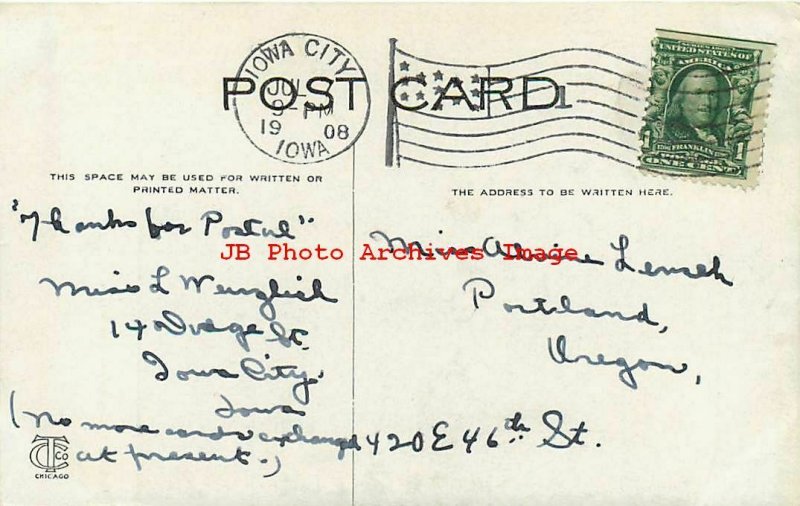 IOWA CITY
JUL
9-PM
19 08
IOWA
POST CARD
1
SERIES 1902
UNITED STATES OF
AMERICA
1 FRANKLIN 1
ONE CENT
THIS SPACE MAY BE USED FOR WRITTEN OR
PRINTED MATTER.
"Thanks for Postal"
Miss L
14 St.
Iowa City.
Iowa
(No more cards exchanged
at present.)
CT CO
CHICAGO
THE ADDRESS TO BE WRITTEN HERE.
Miss Lensch
Portland,
Oregon,
420 E 46th St.
JB Photo Archives Image